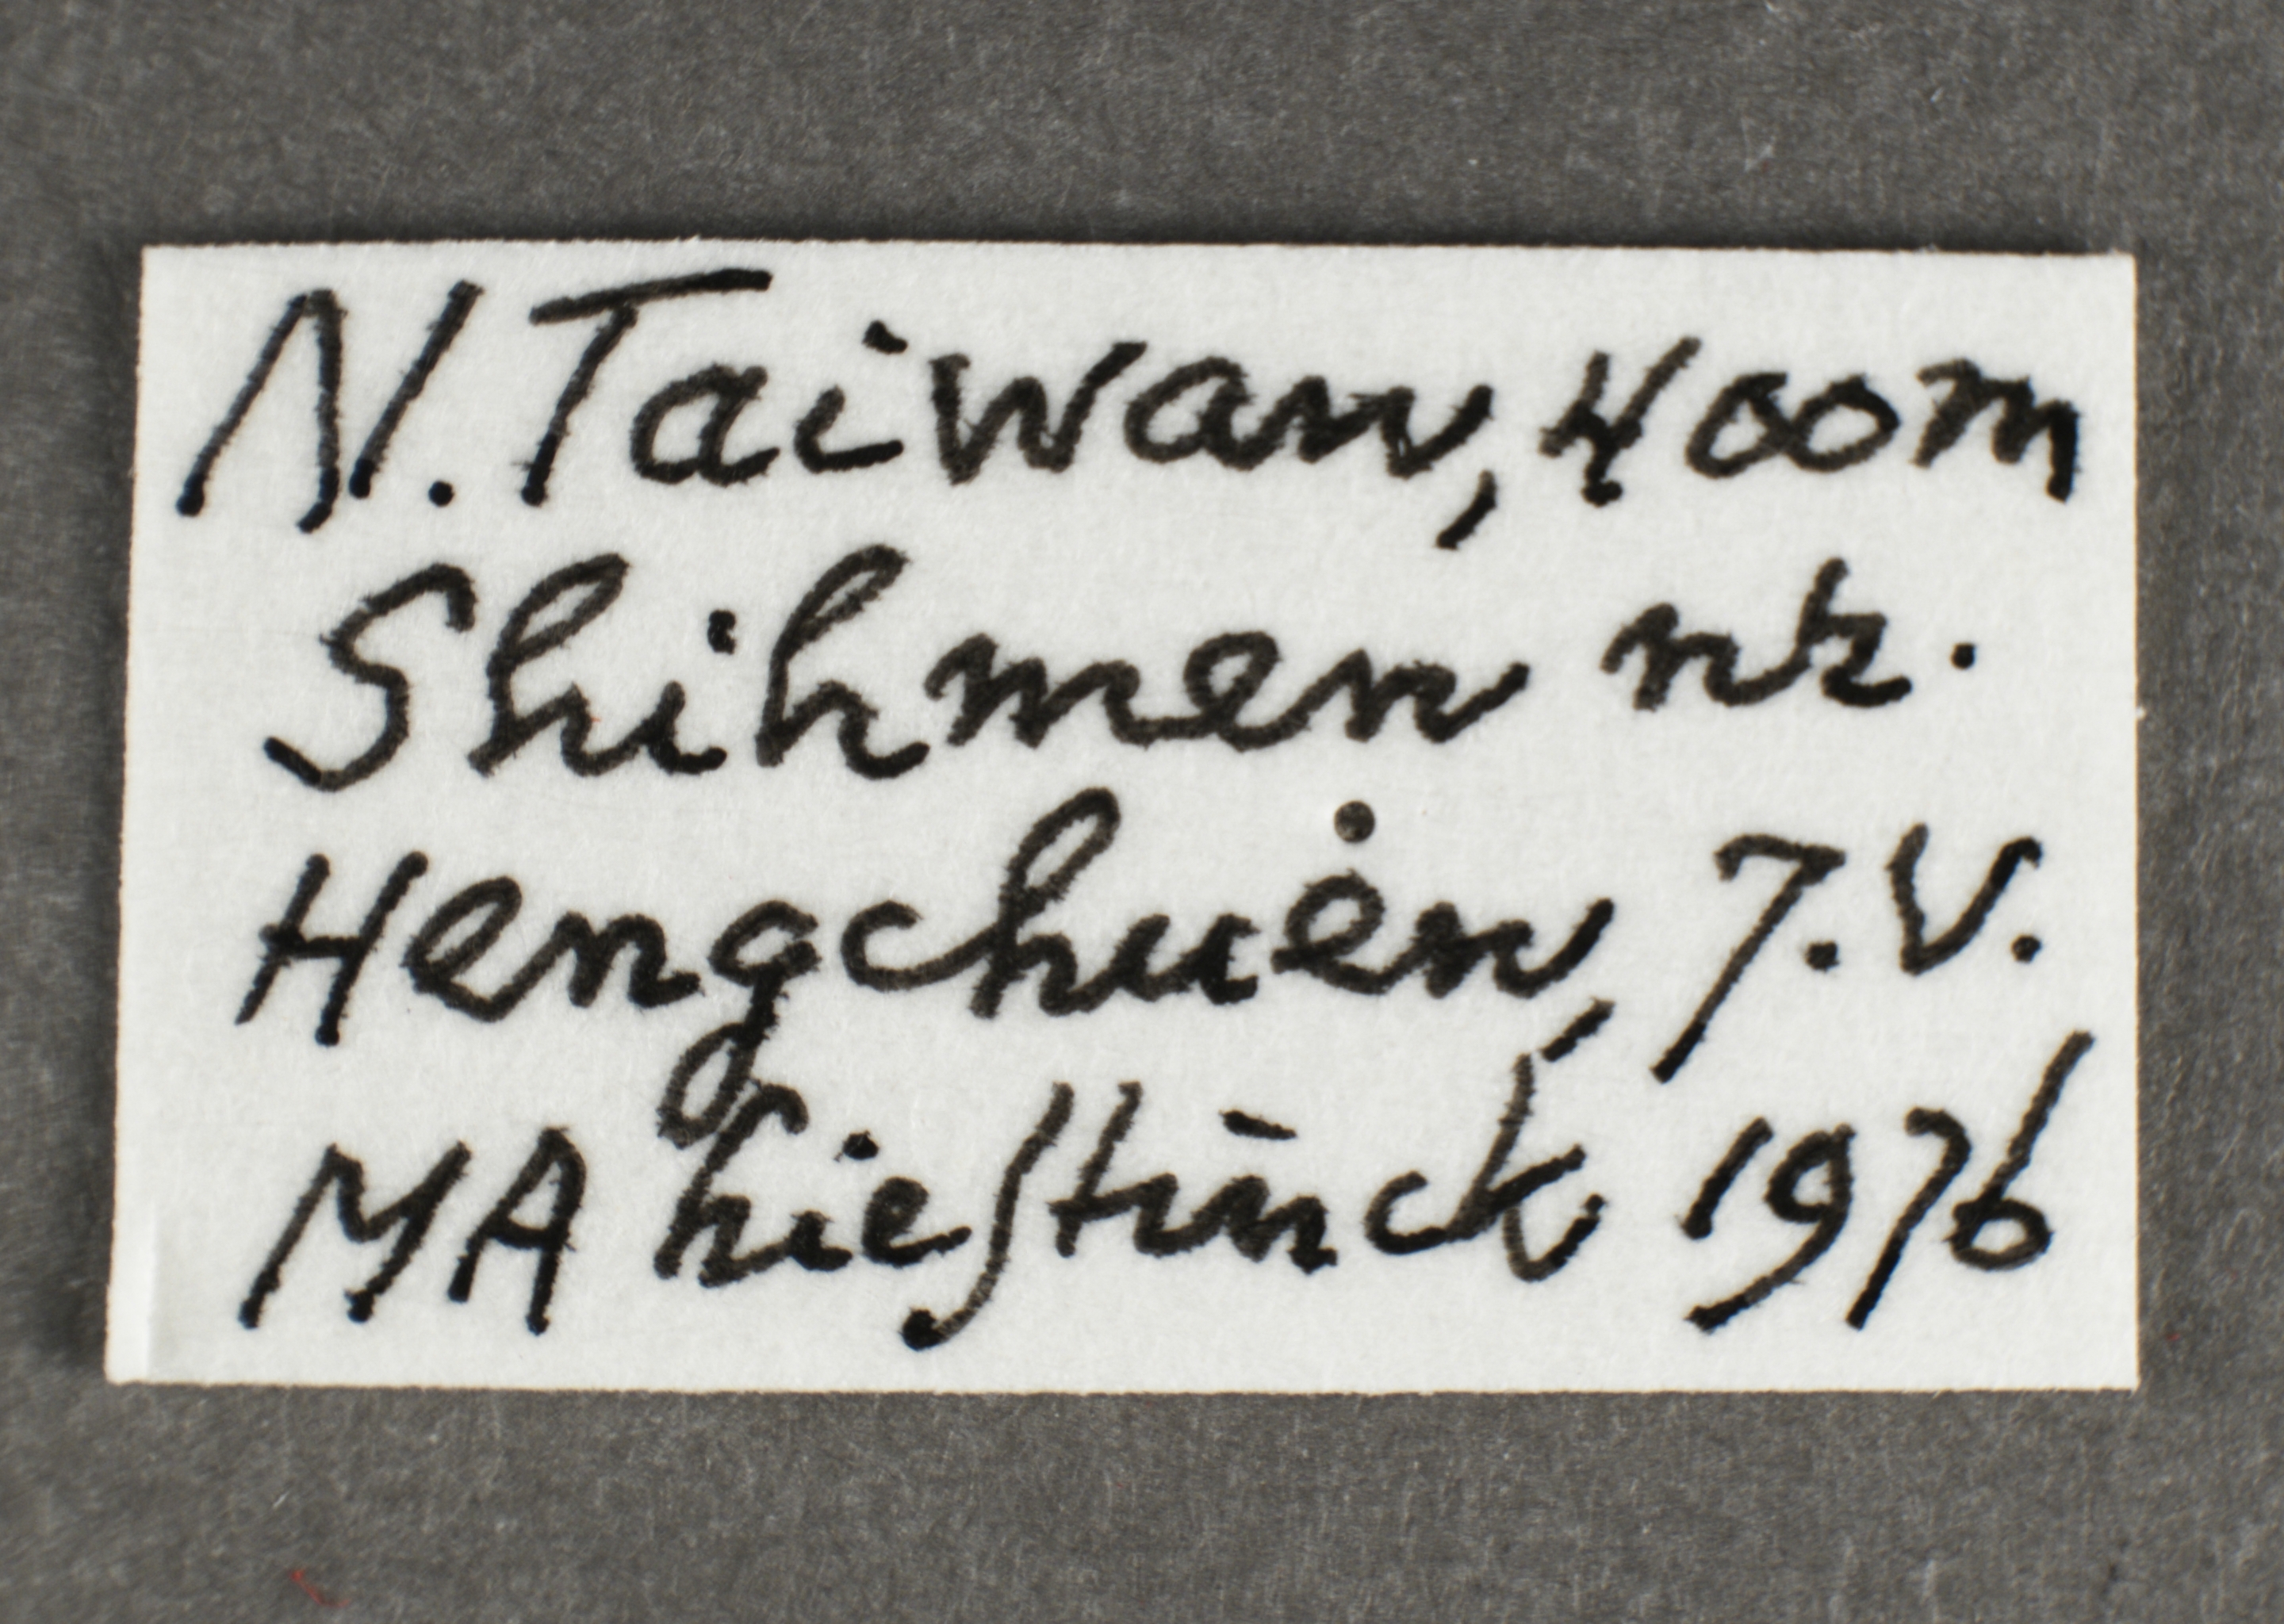 N. Taiwan, 400m
Shihmen nr.
Hengchuen, 7.V.
MA Lieftinck 1976